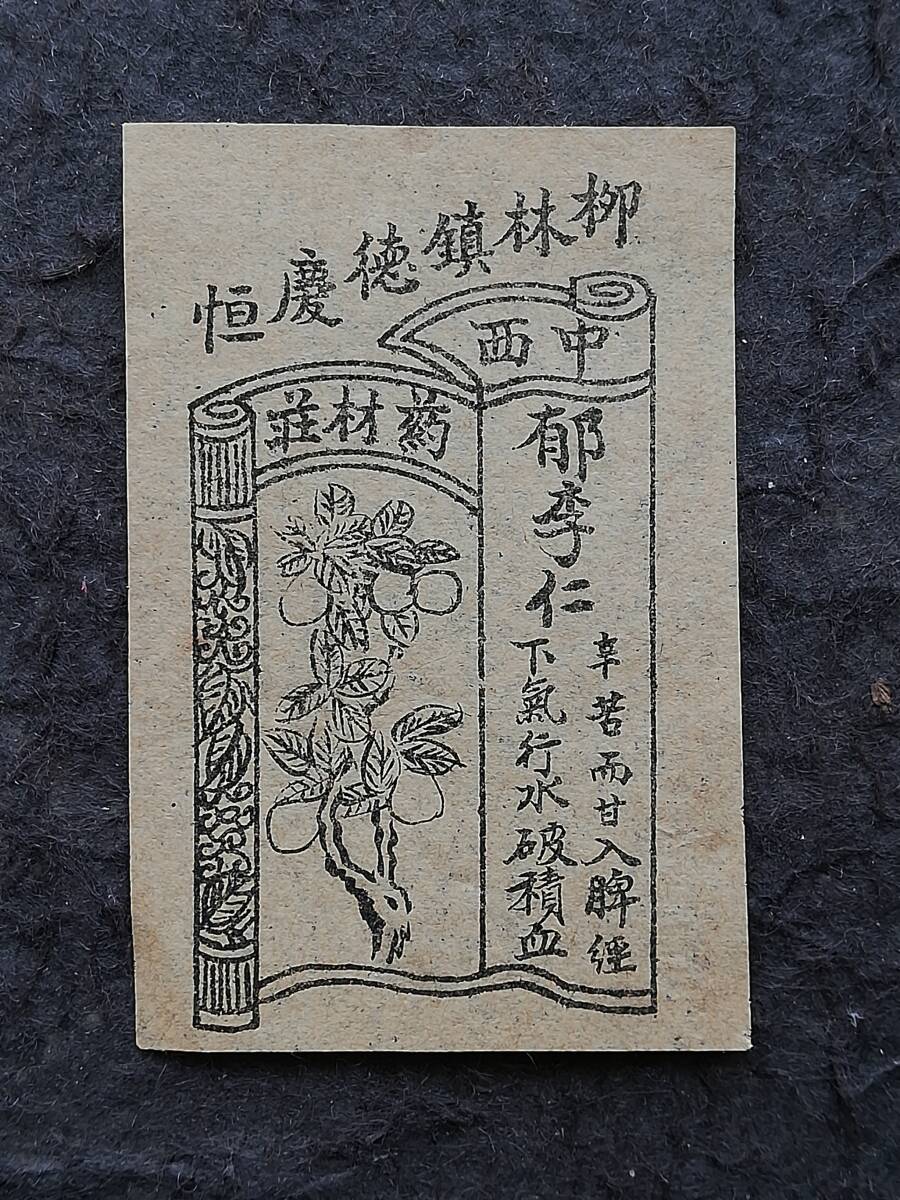 柳林鎮德慶恒
中西
葯材莊
郁李仁
辛苦而甘入脾經
下氣行水破積血